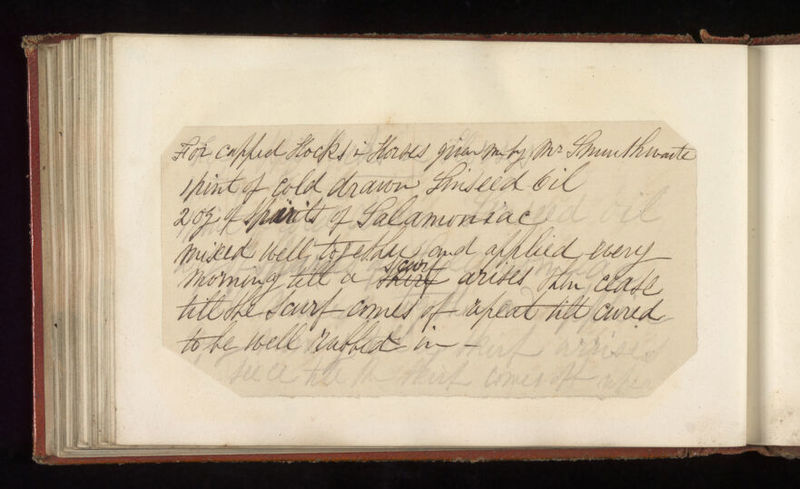 For capped Hocks in Horses given me by Mr Smurthwaite
1 pint of cold drawn Linseed Oil
2 oz of Spirits of Salamoniac
mixed well together and applied every
morning till a skirf scurf arises then cease
till the scurf comes of repeat till cured
to be well rubbed in -